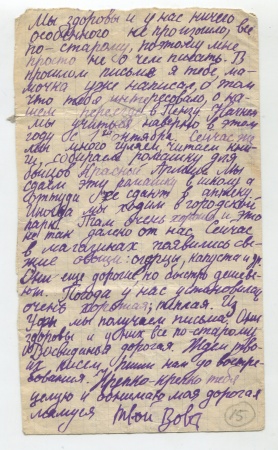 Мы здоровы и у нас ничего
особенного не произошло, все
по-старому, потому мне
просто не о чем писать. В
прошлом письме я тебе, ма-
мочка уже написал, о том
что тебя интересовало, о на-
шем переезде в Пензу.
мы учиться наверно в этом
году с 1 октября. Сейчас
мы много гуляем, читаем кни-
ги, собираем ромашку для
бойцов Красной Армии. Мы
сдаем эту ромашку в школу
оттуда уже сдают в аптеку.
Иногда мы ходим в городской
парк. Там очень хорошо и это
не так далеко от нас. Сейчас
в магазинах появились све-
жие овощи: огурцы, капуста и др.
Они еще дороги но быстро дешеве-
ют. Погода у нас установилась
очень хорошая; теплая. Из
мы получаем письма. Они
здоровы и у них все по-старому.
До свидания дорогая. Ждем тво-
их писем, пиши нам до востре-
бования. Крепко-крепко тебя
целую и обнимаю моя дорогая
мамуся Твой Вова
15